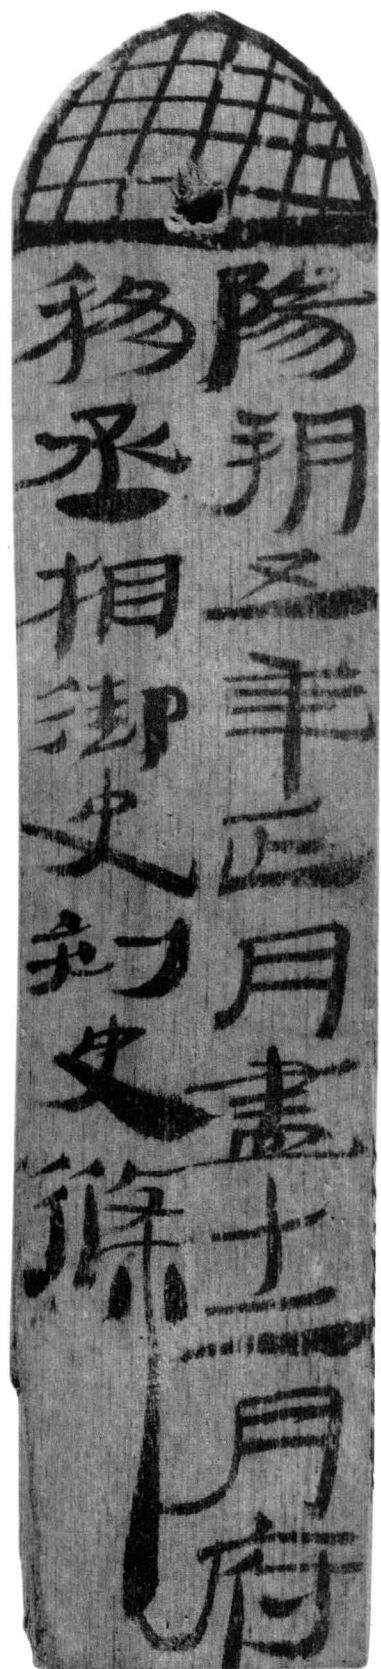 陽朔五年正月盡十二月府
移丞相御史刺史條